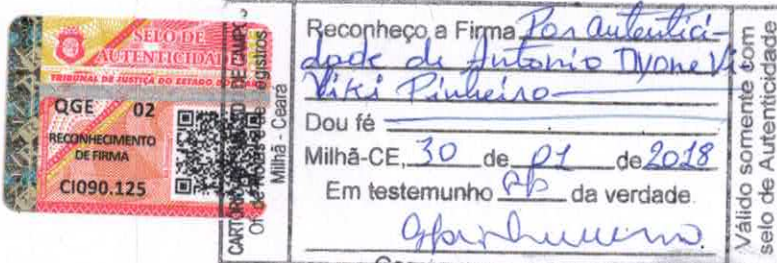 SELO DE
AUTENTICIDADE
TRIBUNAL DE JUSTIÇA DO ESTADO DO
QGE 02
RECONHECIMENTO
DE FIRMA
CI090.125
DE CAMPE
Milhã - Ceará
Reconheço a Firma Por autentici-
dade de Antonio Dyone Vi
Viki Pinheiro
Dou fé
Milhã-CE, 30 de 01 de 2018
Em testemunho da verdade.
Válido somente com
selo de Autenticidade